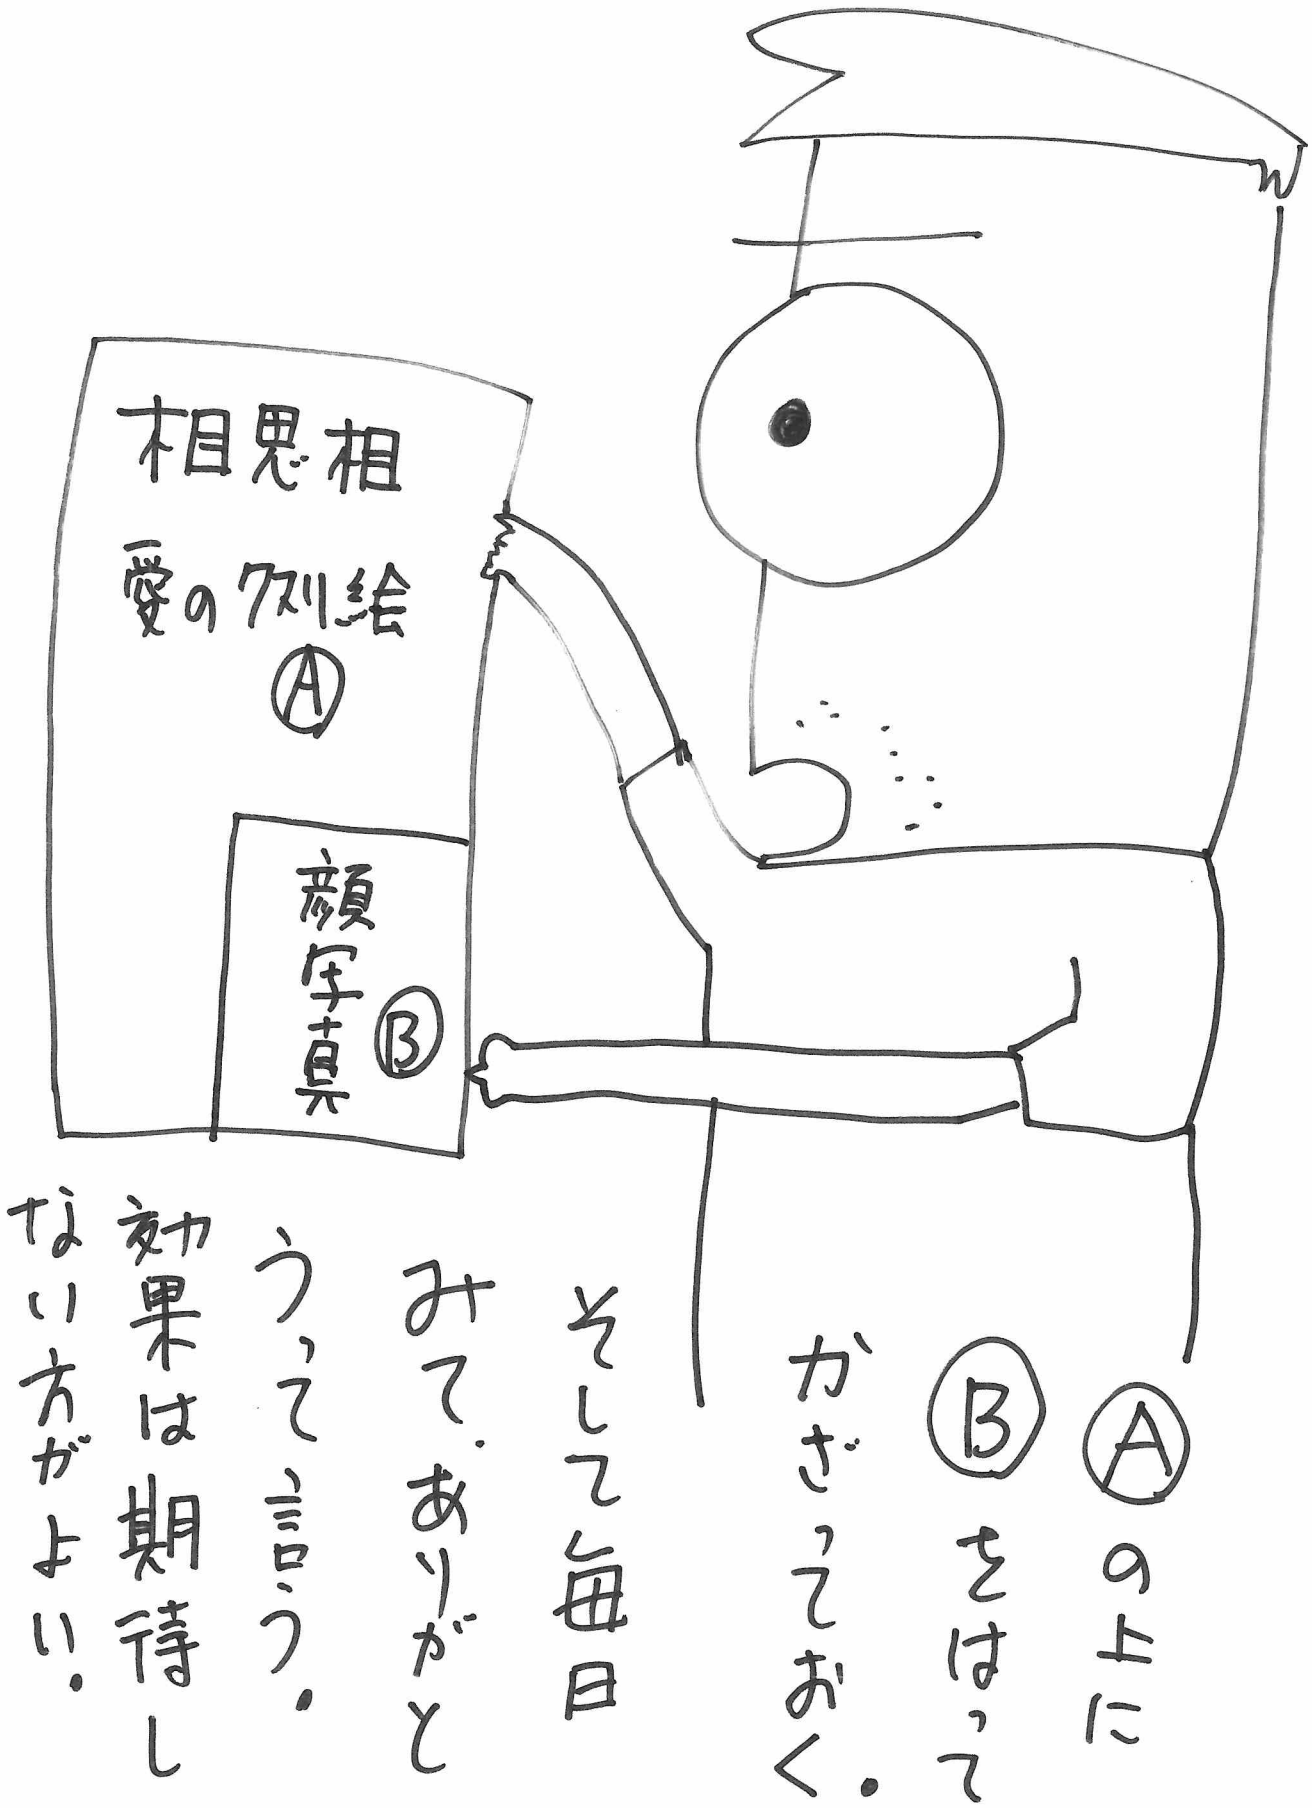 相思相
愛の例絵
Ⓐ
顔写真
Ⓑ
Ⓐの上に
Ⓑをはって
かざっておく.
そして毎日
みて.ありがと
うって言う.
効果は期待し
ない方がよい.